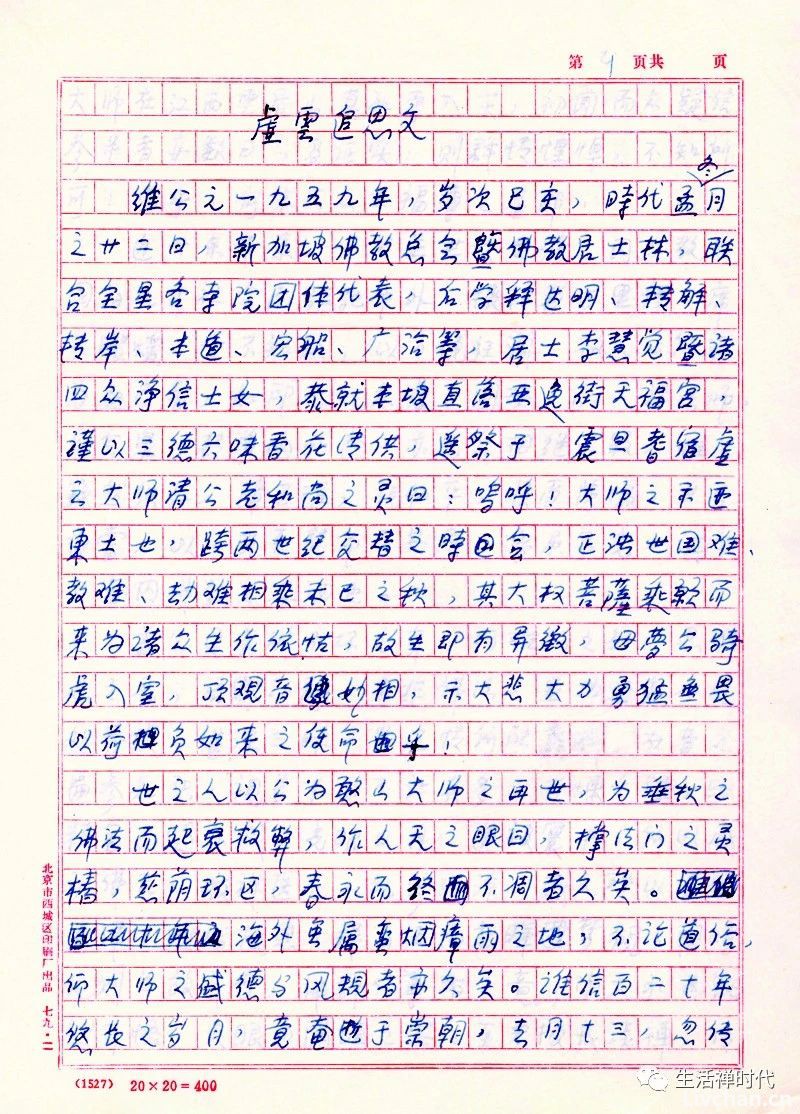 第 9 页共 页
虚雲追思文
维公元一九五九年，岁次已亥，時代孟冬月
之廿二日，新加坡佛教总会暨佛教居士林，联
合全星各寺院团体代表，后学释达明、转解、
转岸、本道、宏船、广洽等，居士李慧觉暨诸
四众净信士女，恭就本坡直落亚逸街天福宫，
谨以三德六味香花清供，遥祭于 震旦耆宿虚
云大师清公老和尚之灵曰：嗚呼！大师之示迹
東土也，跨两世纪交替之時会，正浊世国难、
教难、劫难相乘未已之秋，其大权菩薩乘願而
来为诸众生作依怙，故生即有异徵，母夢公騎
虎入室，顶观音妙相，示大悲大力勇猛無畏
以荷担负如来之使命乎！
世之人以公为憨山大师之再世，为垂秋之
佛法而起衰救弊，作人天之眼目，撑法门之灵
椿，慈荫环区，春永而终不凋者久矣。
海外虽属蛮烟瘴雨之地，不论道俗，
仰大师之盛德与风规者亦久矣。谁信百二十年
悠长之岁月，竟奄逝于崇朝，去月十三，忽传
北京市西城区印刷厂出品 七九·二
(1527) 20×20=400
生活禅时代